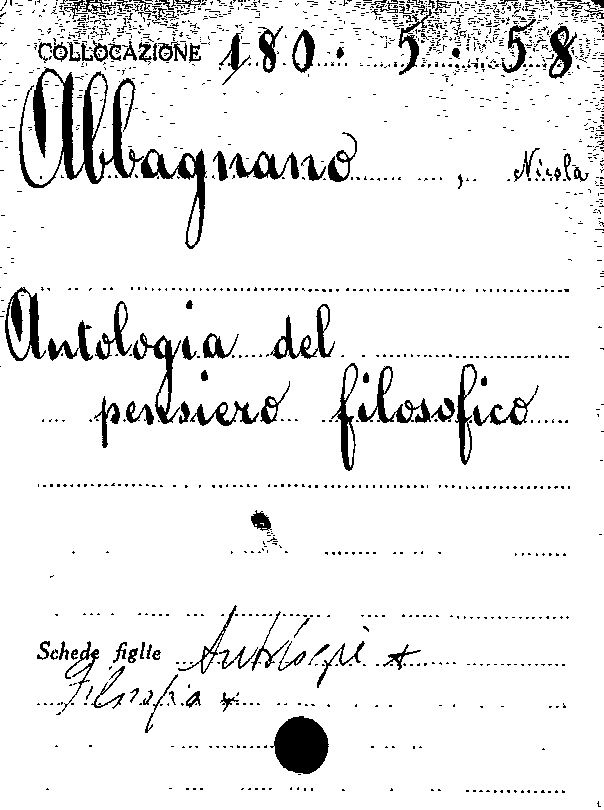 COLLOCAZIONE 180. 5. 58
Abbagnano, Nicola
Antologia del
pensiero filosofico
Schede figlie Antologie *
Filosofia *